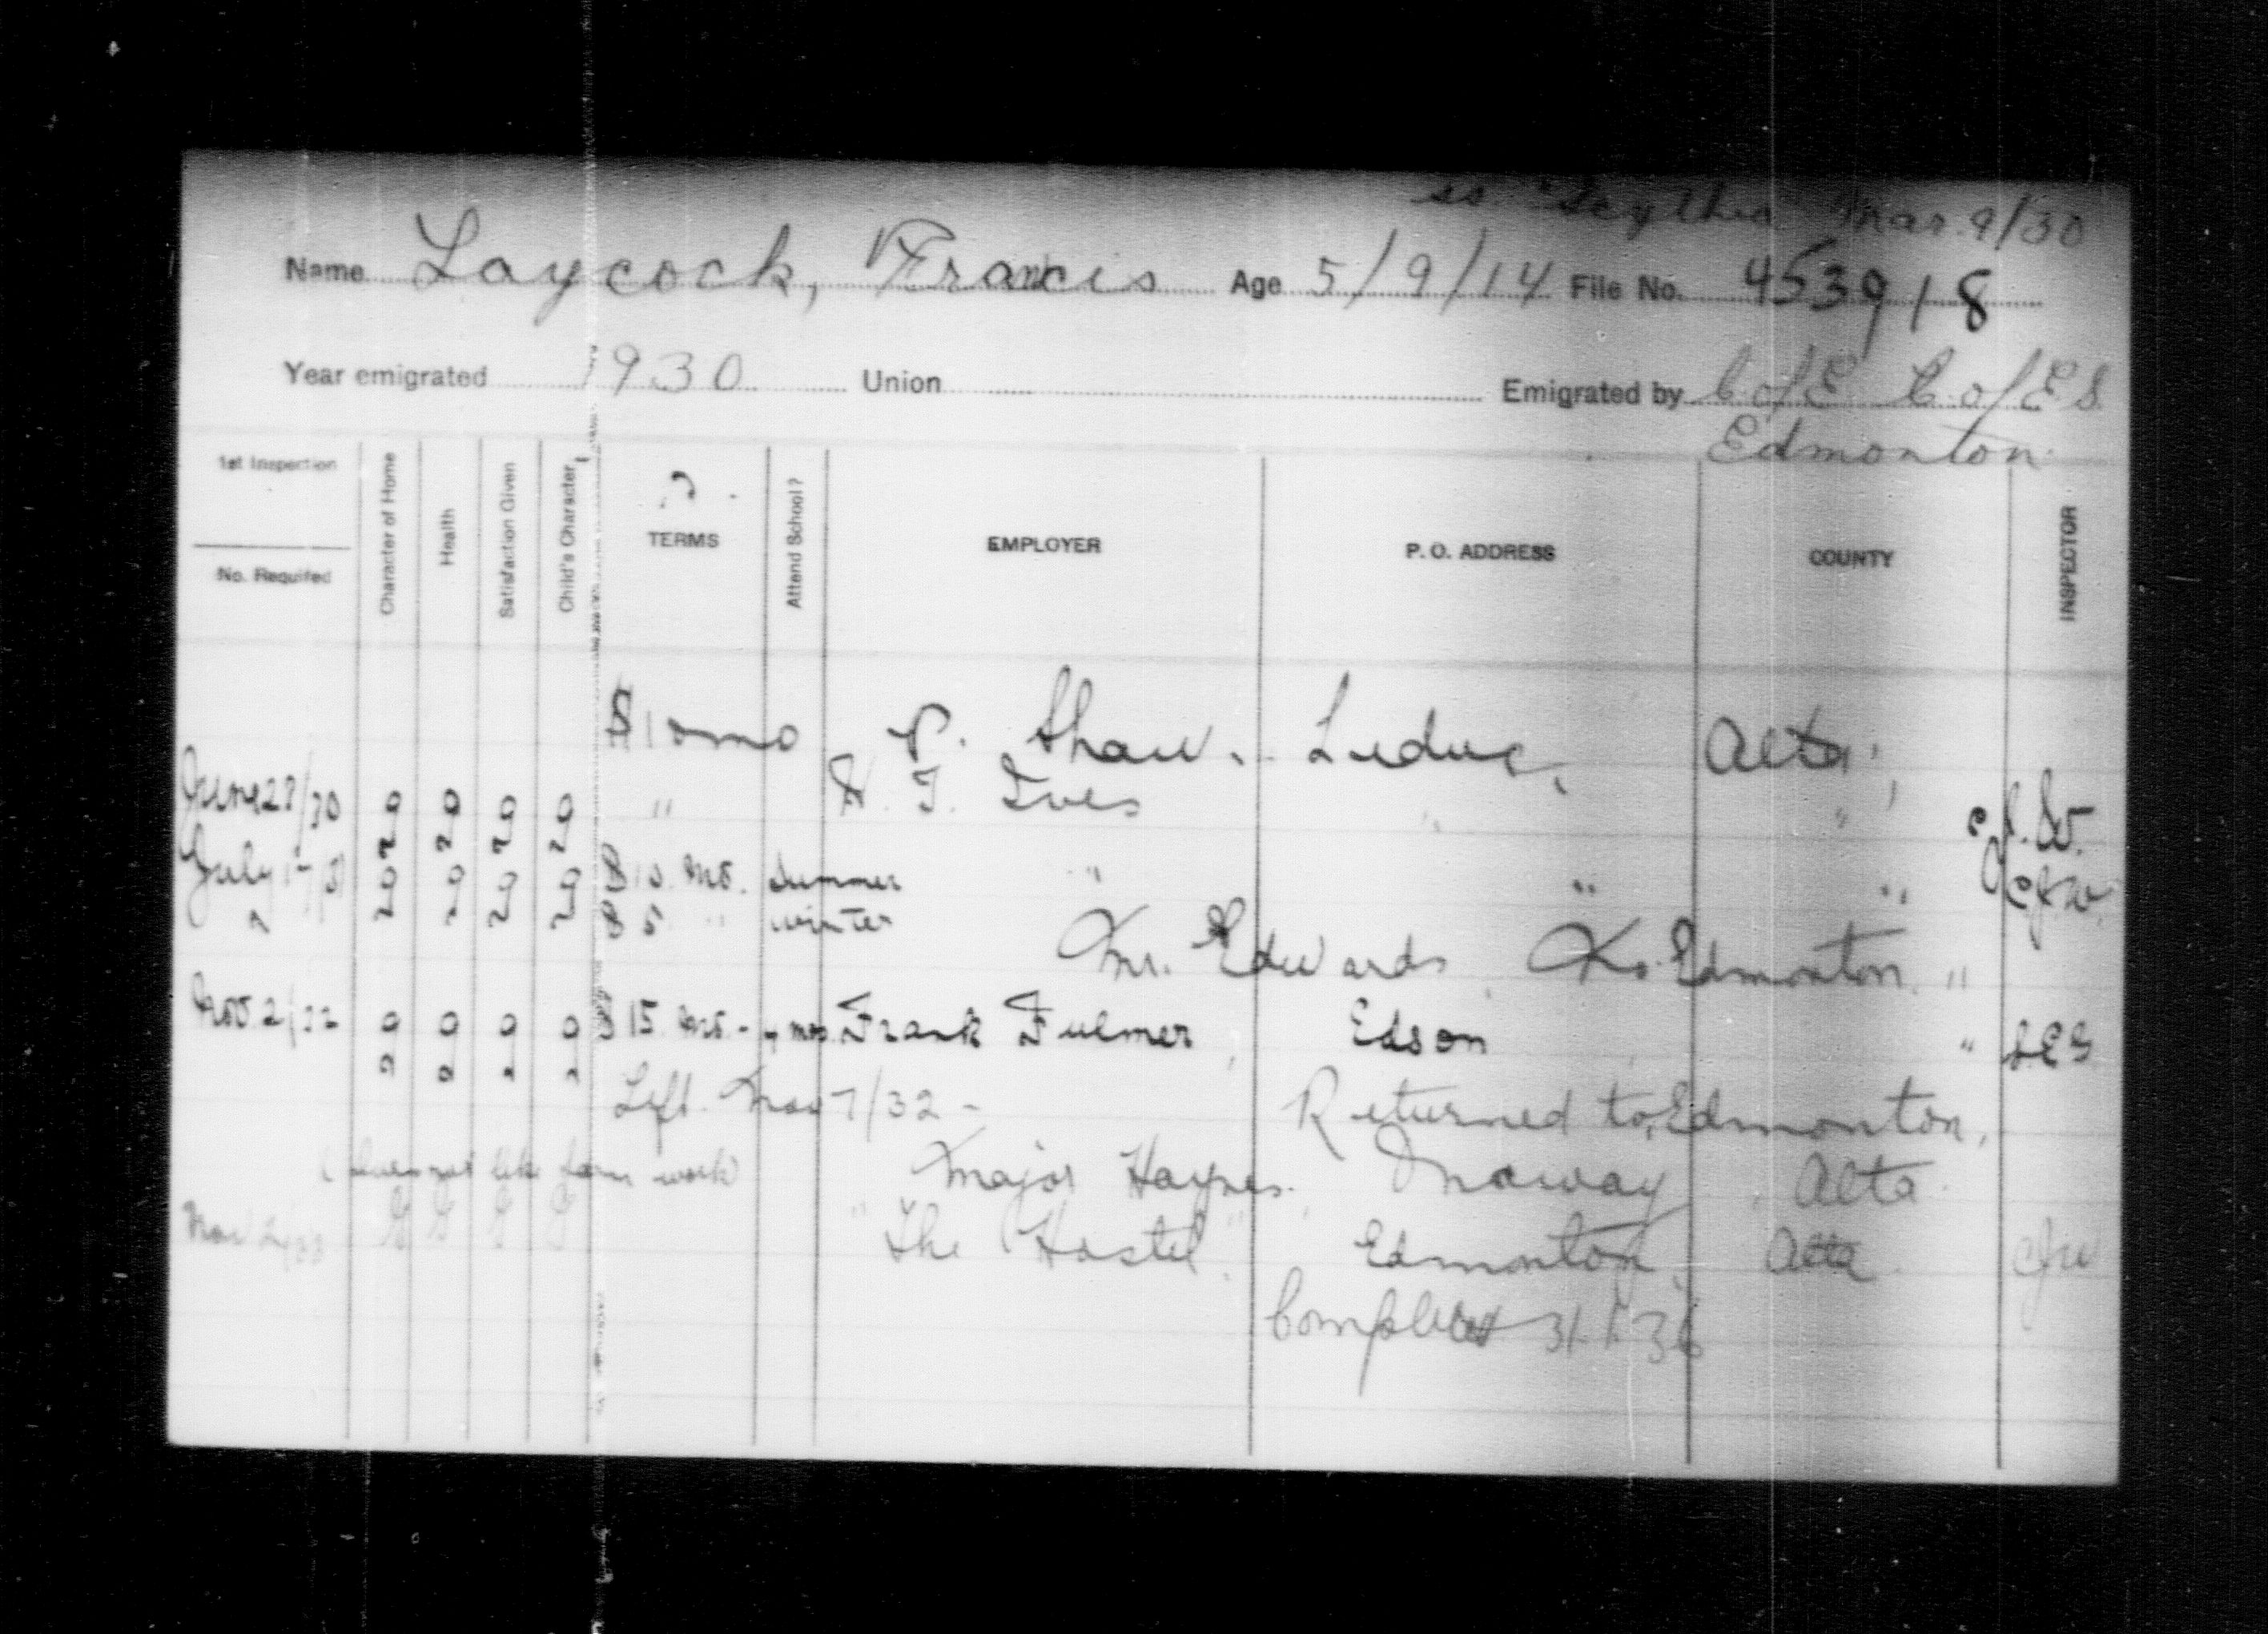 ss "Scythia" Mar. 9/30
Name Laycock, Francis Age 5/9/14 File No. 453918
Year emigrated 1930 Union Emigrated by C of E C of E S
Edmonton
1st Inspection
No. Required
Character of Home
Health
Satisfaction Given
Child's Character
? TERMS
Attend School?
EMPLOYER
P. O. ADDRESS
COUNTY
INSPECTOR
$10 mo P. Shaw. Leduc, Alta,
June 27/30 g g g g " H. T. Ives " " C.J.W.
July /31 g g g g $10 mo. summer " " " CJW.
$5 " winter
Mr. Edwards, Edmonton "
Nov 2/32 g g g g $15 mo. - Frank Fulmer, Edson "
Left Nov 7/32 - Returned to Edmonton,
(does not like farm work) Major Haynes. Alta
Nov 2/33 G G G G "The Hostel", Edmonton, Alta CJW
Completed 31 1 36